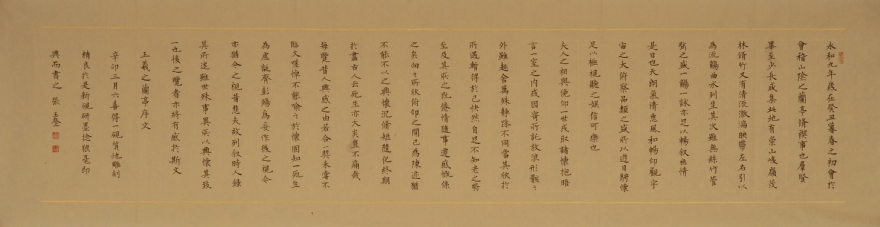 永和九年歲在癸丑暮春之初會於
會稽山陰之蘭亭脩禊事也群賢
畢至少長咸集此地有崇山峻嶺茂
林脩竹又有清流激湍映帶左右引以
為流觴曲水列坐其次雖無絲竹管
弦之盛一觴一詠亦足以暢敘幽情
是日也天朗氣清惠風和暢仰觀宇
宙之大俯察品類之盛所以遊目騁懷
足以極視聽之娛信可樂也
夫人之相與俯仰一世或取諸懷抱晤
言一室之內或因寄所託放浪形骸之
外雖趣舍萬殊靜躁不同當其欣於
所遇暫得於己快然自足不知老之將
至及其所之既倦情隨事遷感慨係
之矣向之所欣俛仰之間已為陳迹猶
不能不以之興懷況脩短隨化終期
於盡古人云死生亦大矣豈不痛哉
每覽昔人興感之由若合一契未嘗不
臨文嗟悼不能喻之於懷固知一死生
為虛誕齊彭殤為妄作後之視今
亦猶今之視昔悲夫故列敘時人錄
其所述雖世殊事異所以興懷其致
一也後之覽者亦將有感於斯文
王羲之蘭亭序文
辛卯三月六喜得一硯質地雕刻
精良於是新硯研墨捻狼毫即
興而書之